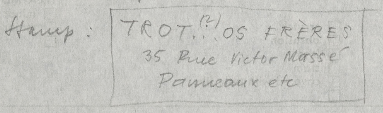 Stamp : TROT(?)...OS FRÈRES
35 Rue Victor Massé
Panneaux etc